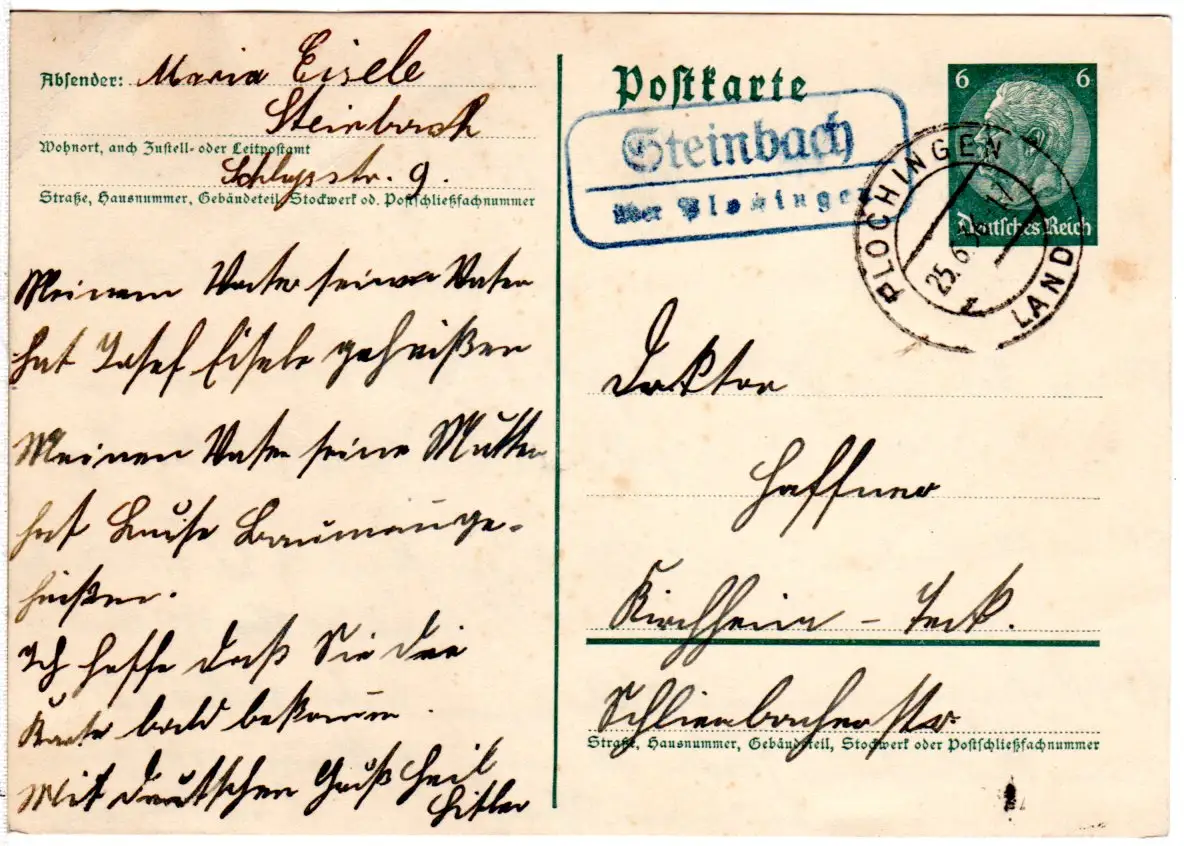 Absender: Maria Eisele
Steinbach
Wohnort, auch Zustell- oder Leitpostamt
Schloßstr. 9.
Straße, Hausnummer, Gebäudeteil, Stockwerk od. Postschließfachnummer
Meinem Vater seinen Vater
hat Josef Eisele geheißen
Meinen Vater seine Mutter
hat Luise Baumann ge-
heißen.
Ich hoffe daß Sie die
Karte bald bekommen.
Mit deutschen Gruß Heil
Hitler
Postkarte
Steinbach
über Plochingen
6 6
Deutsches Reich
PLOCHINGEN
LAND
25.6.
Doktor
Haffner
Kirchheim - Teck.
Schlierbacherstr.
Straße, Hausnummer, Gebäudeteil, Stockwerk oder Postschließfachnummer